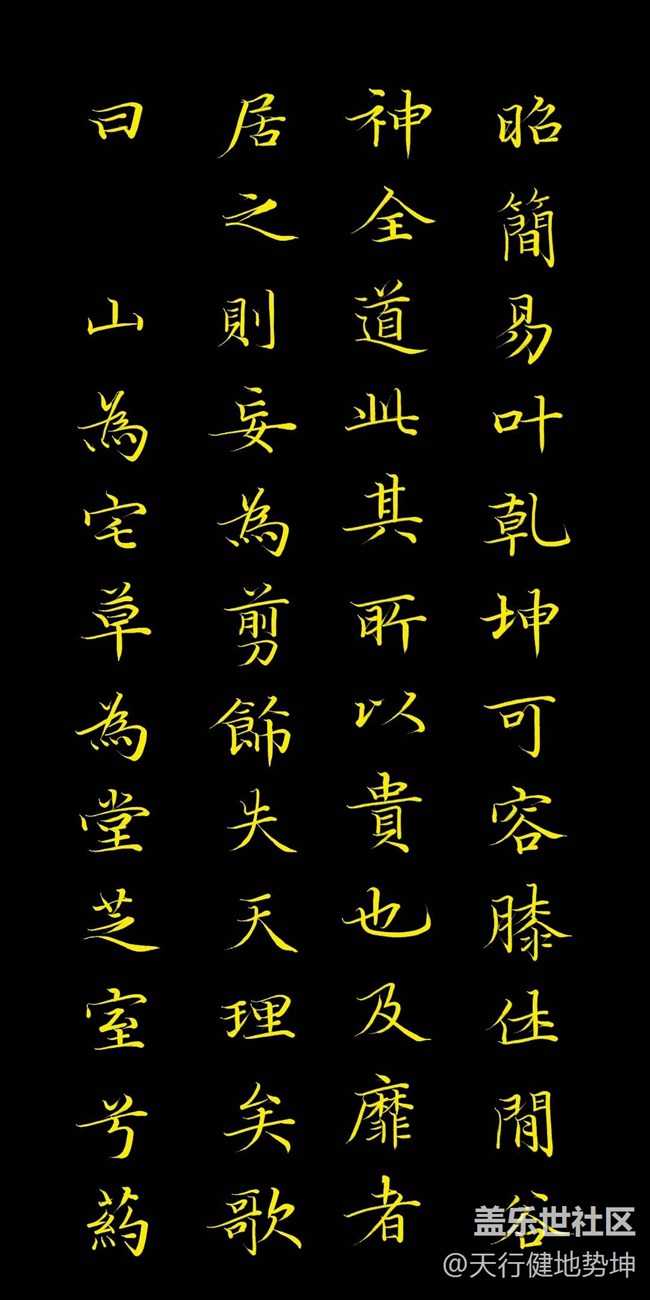 昭簡易叶乾坤可容膝休閒谷
神全道此其所以貴也及靡者
居之則妄為剪飾失天理矣歌
曰 山為宅草為堂芝室兮葯
盖乐世社区
@天行健地势坤